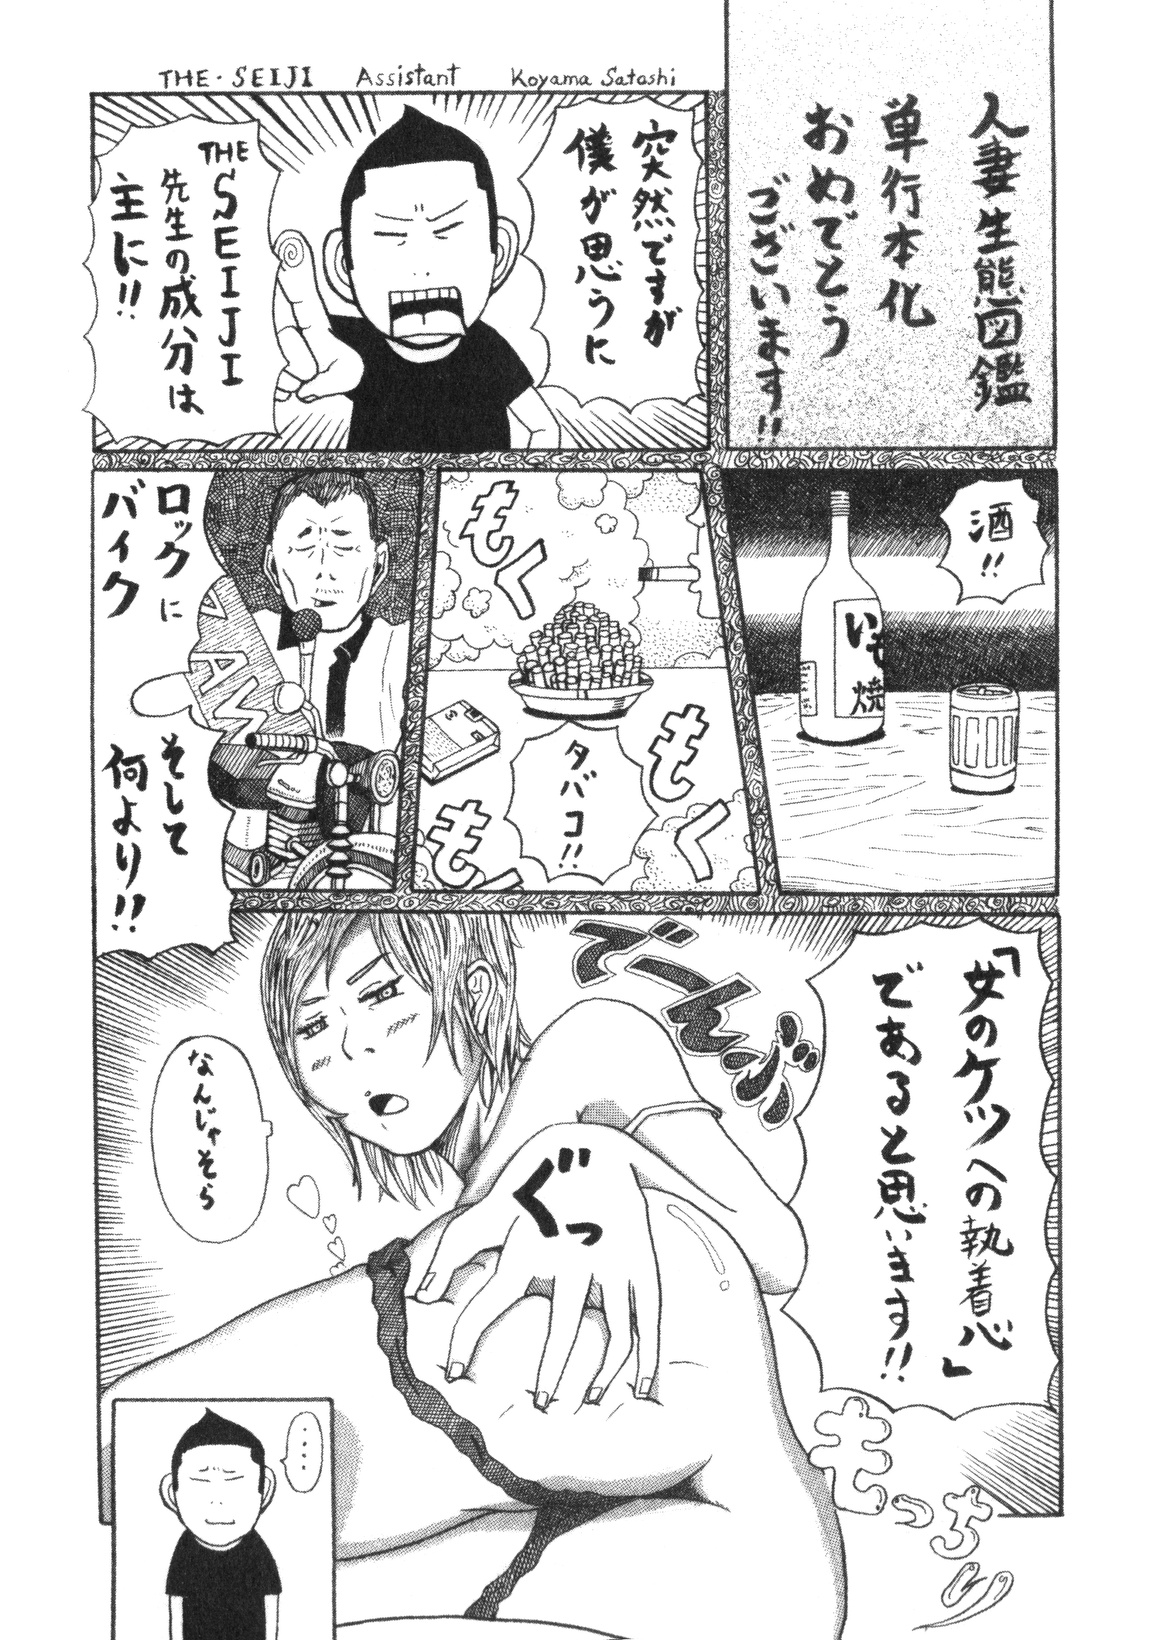 THE・SEIJI Assistant Koyama Satoshi
人妻生態図鑑
単行本化
おめでとう
ございます!!
突然ですが
僕が思うに
THE
SEIJI
先生の成分は
主に!!
酒!!
いも焼
もく
もく
もく
タバコ!!
ロックに
バイク
そして
何より!!
「女のケツへの執着心」
であると思います!!
でーんっ
ぐっ
なんじゃそら
もっちり
・・・・